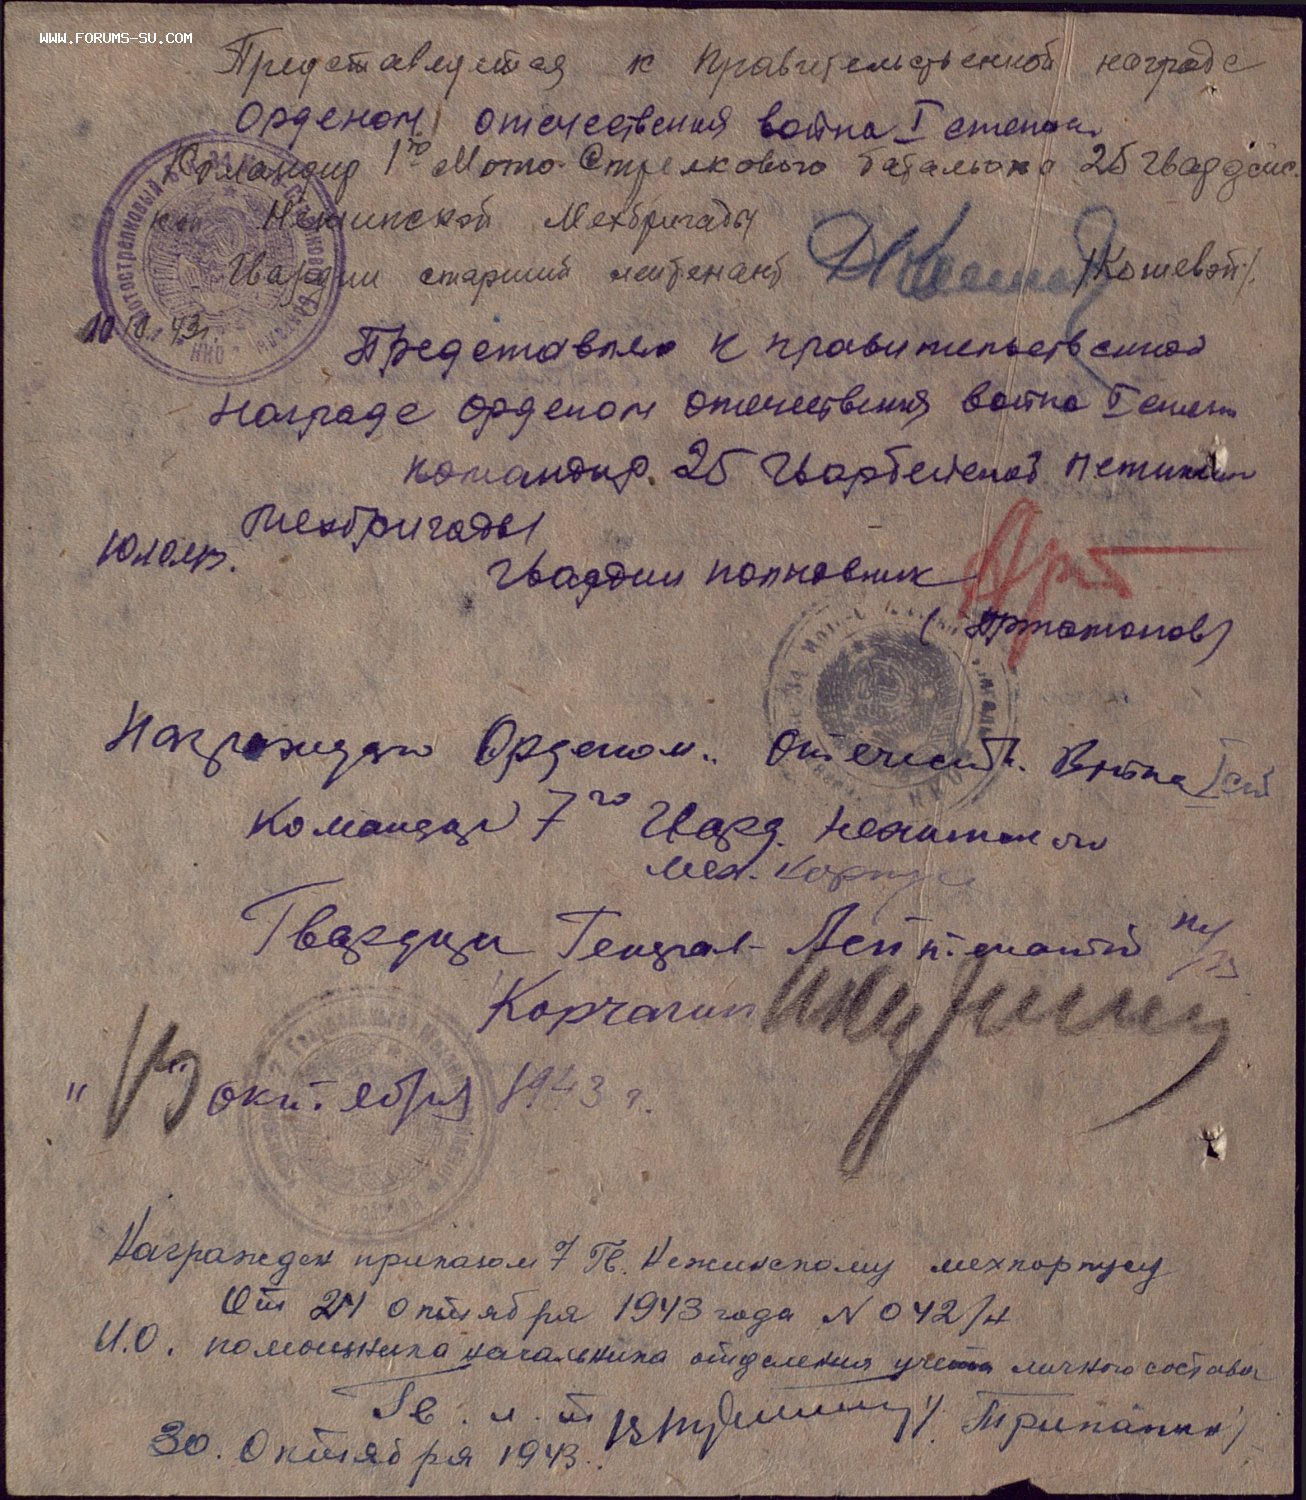 WWW.FORUMS-SU.COM
Представляется к Правительственной награде
орденом отечественная война I степени
Командир 1го Мото-Стрелкового батальона 25 гвардейс
кой Нежинской Мехбригады
Гвардии старший лейтенант /Кошевой/
10.10.43г.
Представляю к правительственной
награде орденом отечественная война I степен
командир 25 Гвардейской Нежинской
мехбригады
Гвардии полковник
(Артамонов)
Награждаю Орденом Отечеств. Война I ст
Командир 7го Гвард. Нежинского
мех. корпуса
Гвардии Генерал-Лейтенант
Корчагин
" 13 " октября 1943 г.
Награжден приказом 7 Гв. Нежинскому мехкорпусу
От 24 октября 1943 года N 042/н
И.О. помощника начальника отделения учета личного состава
Гв. л-т
30. Октября 1943.